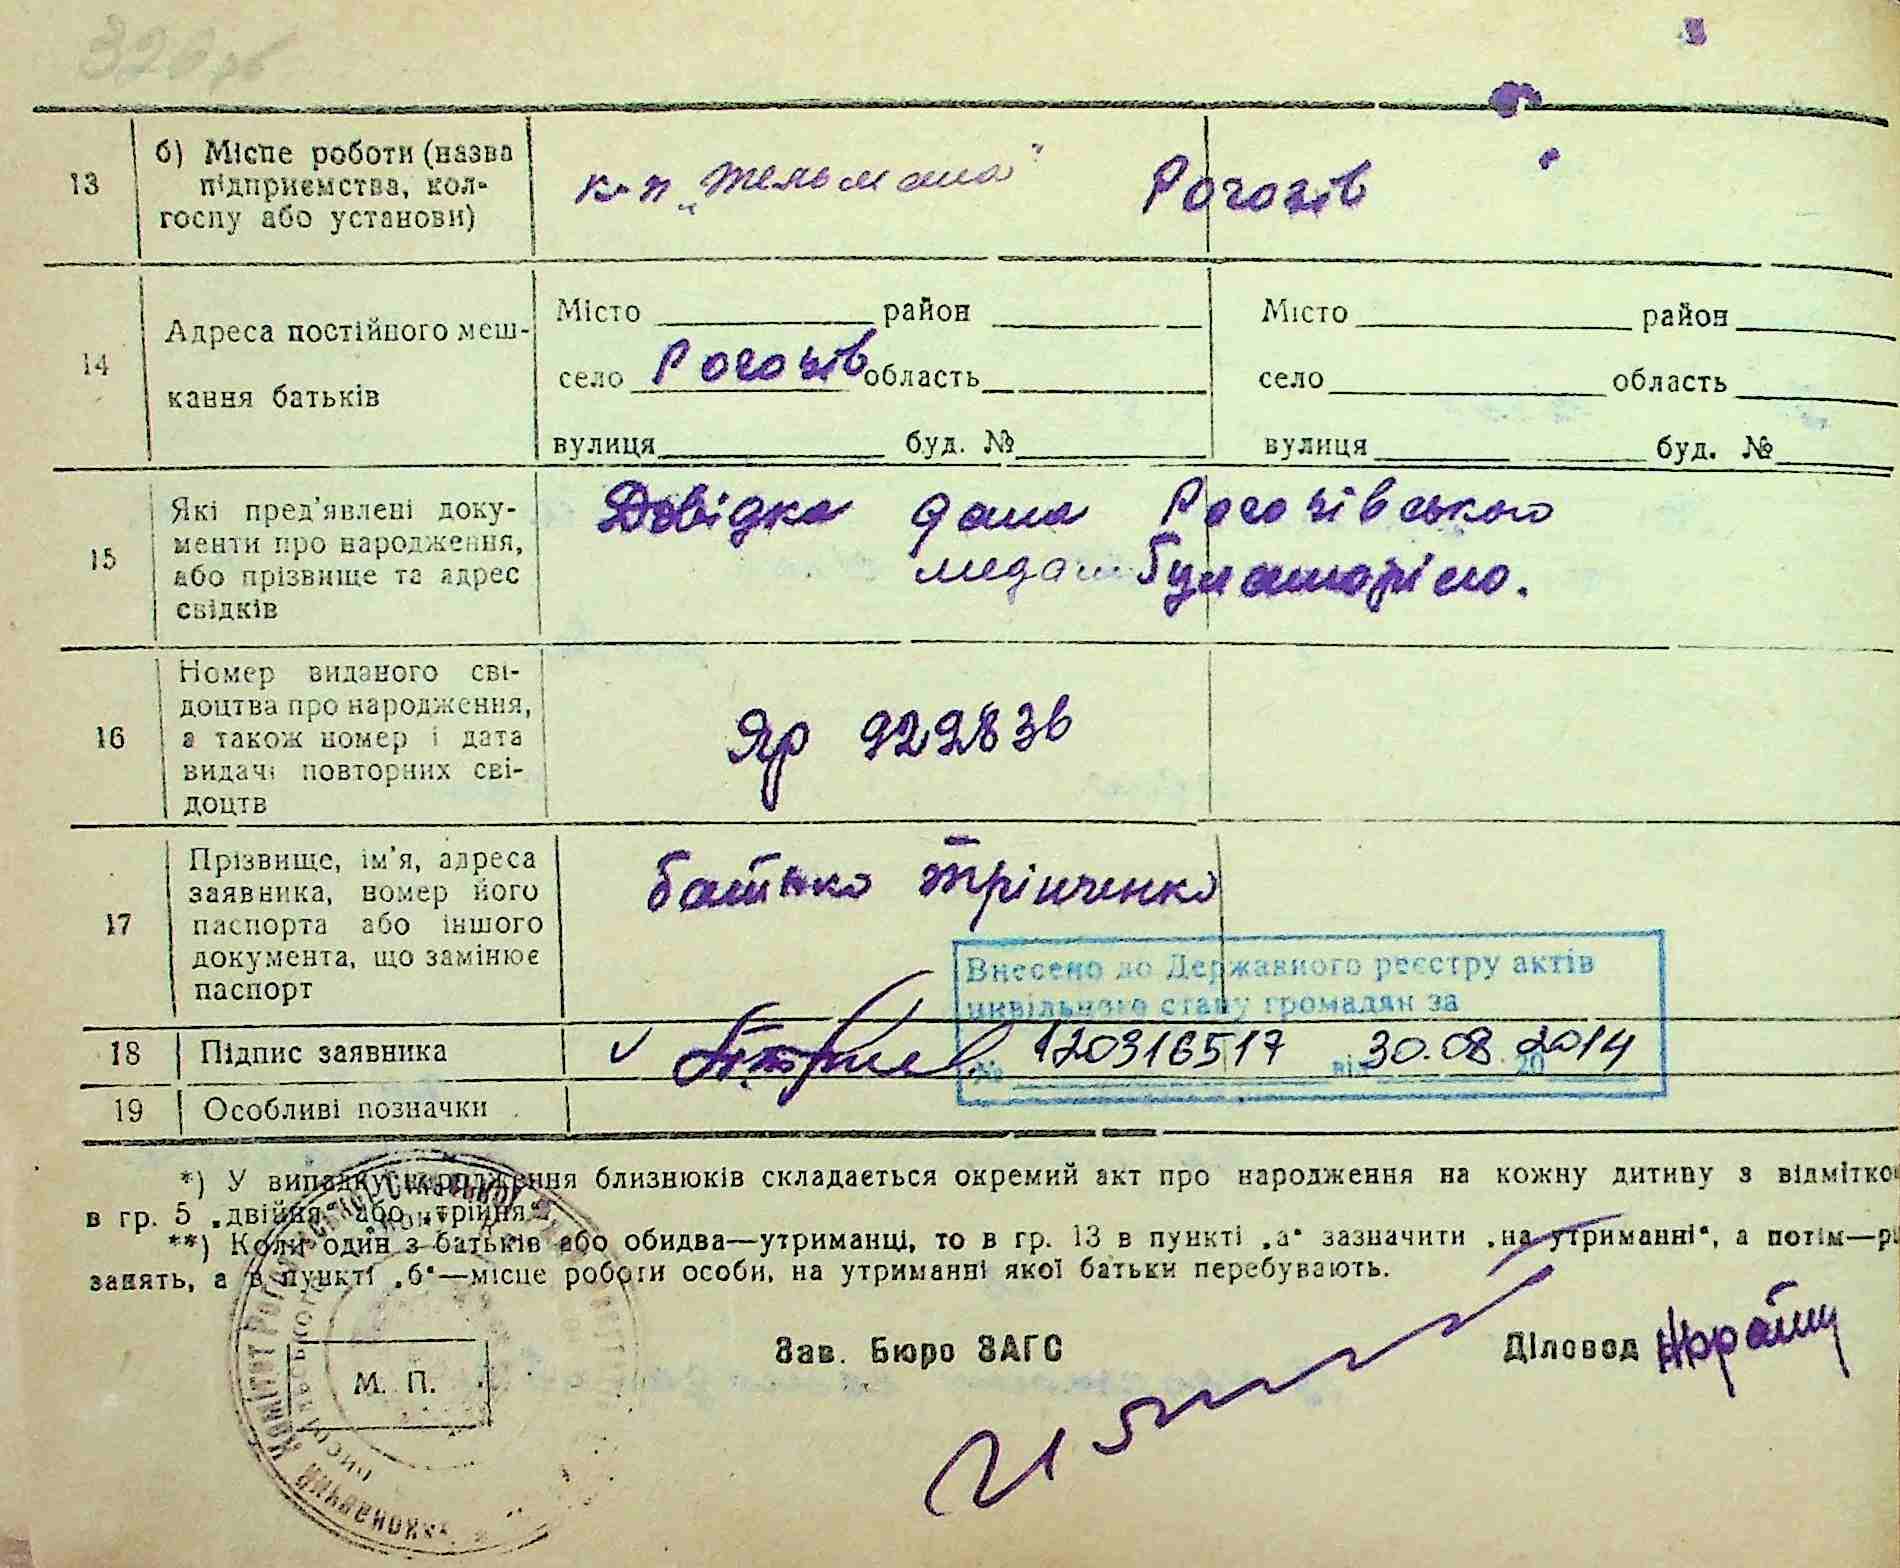 13
б) Місце роботи (назва
підприємства, кол-
госпу або установи)
к-п „Тельмана" Рогозів
14
Адреса постійного меш-
кання батьків
Місто район
село Рогозів область
вулиця буд. №
Місто район
село область
вулиця буд. №
15
Які пред'явлені доку-
менти про народження,
або прізвище та адрес
свідків
Довідка дана Рогозівською
амбулаторією.
16
Номер виданого сві-
доцтва про народження,
а також номер і дата
видачі повторних сві-
доцтв
Яр 922836
17
Прізвище, ім'я, адреса
заявника, номер його
паспорта або іншого
документа, що замінює
паспорт
батько Грінченко
Внесено до Державного реєстру актів
цивільного стану громадян за
№ 120316517 від 30.08 2014
18
Підпис заявника
19
Особливі позначки
*) У випадку народження близнюків складається окремий акт про народження на кожну дитину з відмітко
в гр. 5 „двійня" або „трійня".
**) Коли один з батьків або обидва—утриманці, то в гр. 13 в пункті „а" зазначити „на утриманні", а потім—рі
занять, а в пункті „б"—місце роботи особи, на утриманні якої батьки перебувають.
М. П.
Зав. Бюро ЗАГС
Діловод